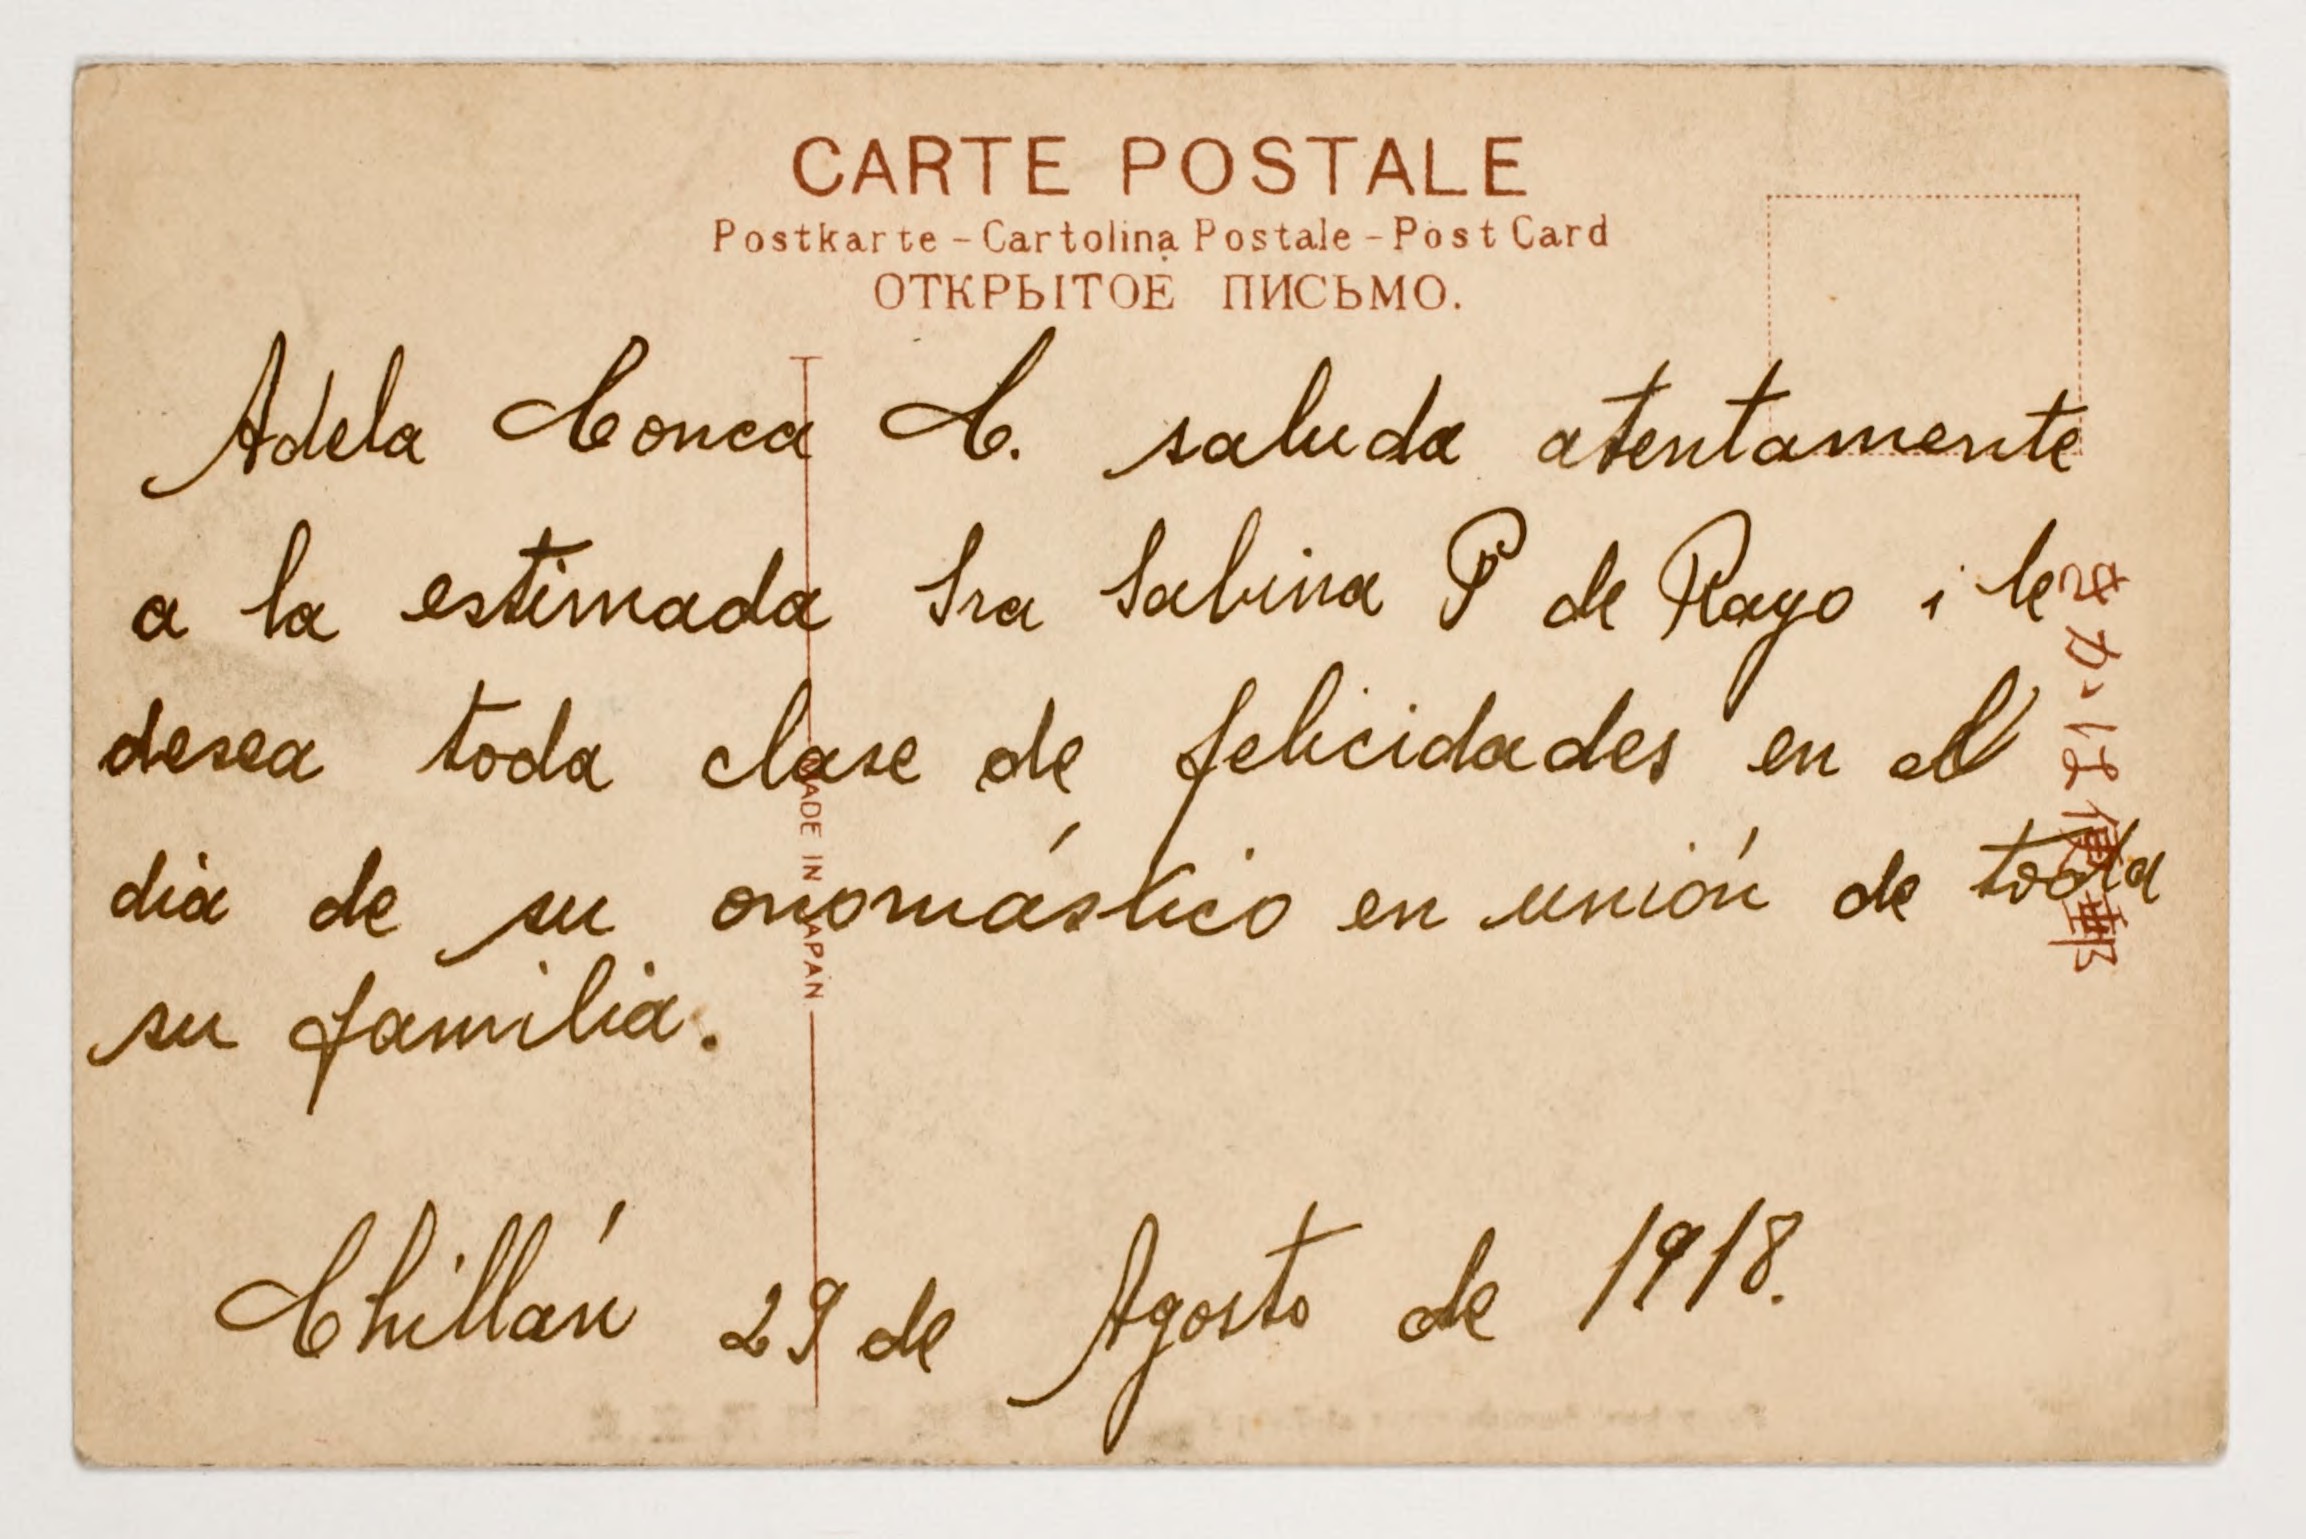 CARTE POSTALE
Postkarte – Cartolina Postale – Post Card
ОТКРЫТОЕ ПИСЬМО.
Adela Conca C. saluda atentamente
a la estimada Sra Sabina P de Rayo i le
desea toda clase de felicidades en el
dia de su onomástico en unión de toda
su familia.
Chillán 29 de Agosto de 1918.
MADE IN JAPAN
郵便はかき